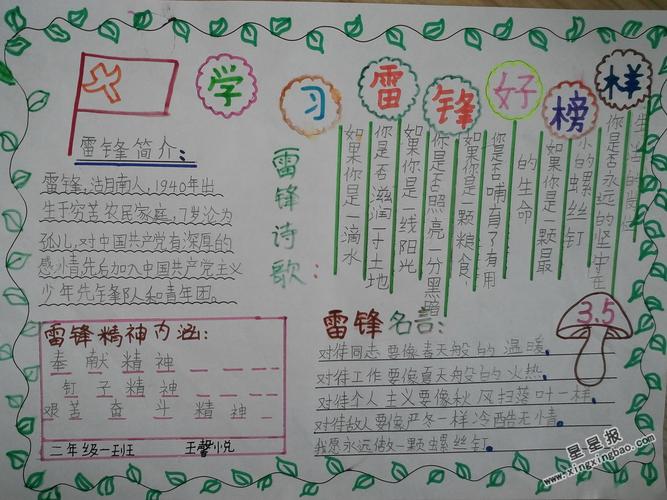 学习雷锋好榜样
雷锋简介:
雷锋,沽目南人,1940年出
生于穷苦农民家庭,7岁沦为
孤儿,对中国共产党有深厚的
感情先后加入中国共产党主义
少年先锋队和青年团。
雷锋诗歌:
如果你是一滴水
你是否滋润一寸土地
如果你是一线阳光
你是否照亮一分黑暗
如果你是一颗粮食
你是否哺育了有用
的生命
如果你是一颗最
小的螺丝钉
你是否永远的坚守在
生活的岗位
雷锋精神内涵:
奉献精神
钉子精神
艰苦奋斗精神
二年级一班 王馨悦
3.5
雷锋名言:
对待同志要像春天般的温暖.
对待工作要像夏天般的火热.
对待个人主义要像秋风扫落叶一样.
对待敌人要像严冬一样冷酷无情.
我愿永远做一颗螺丝钉.
星星报
www.xingxingbao.com